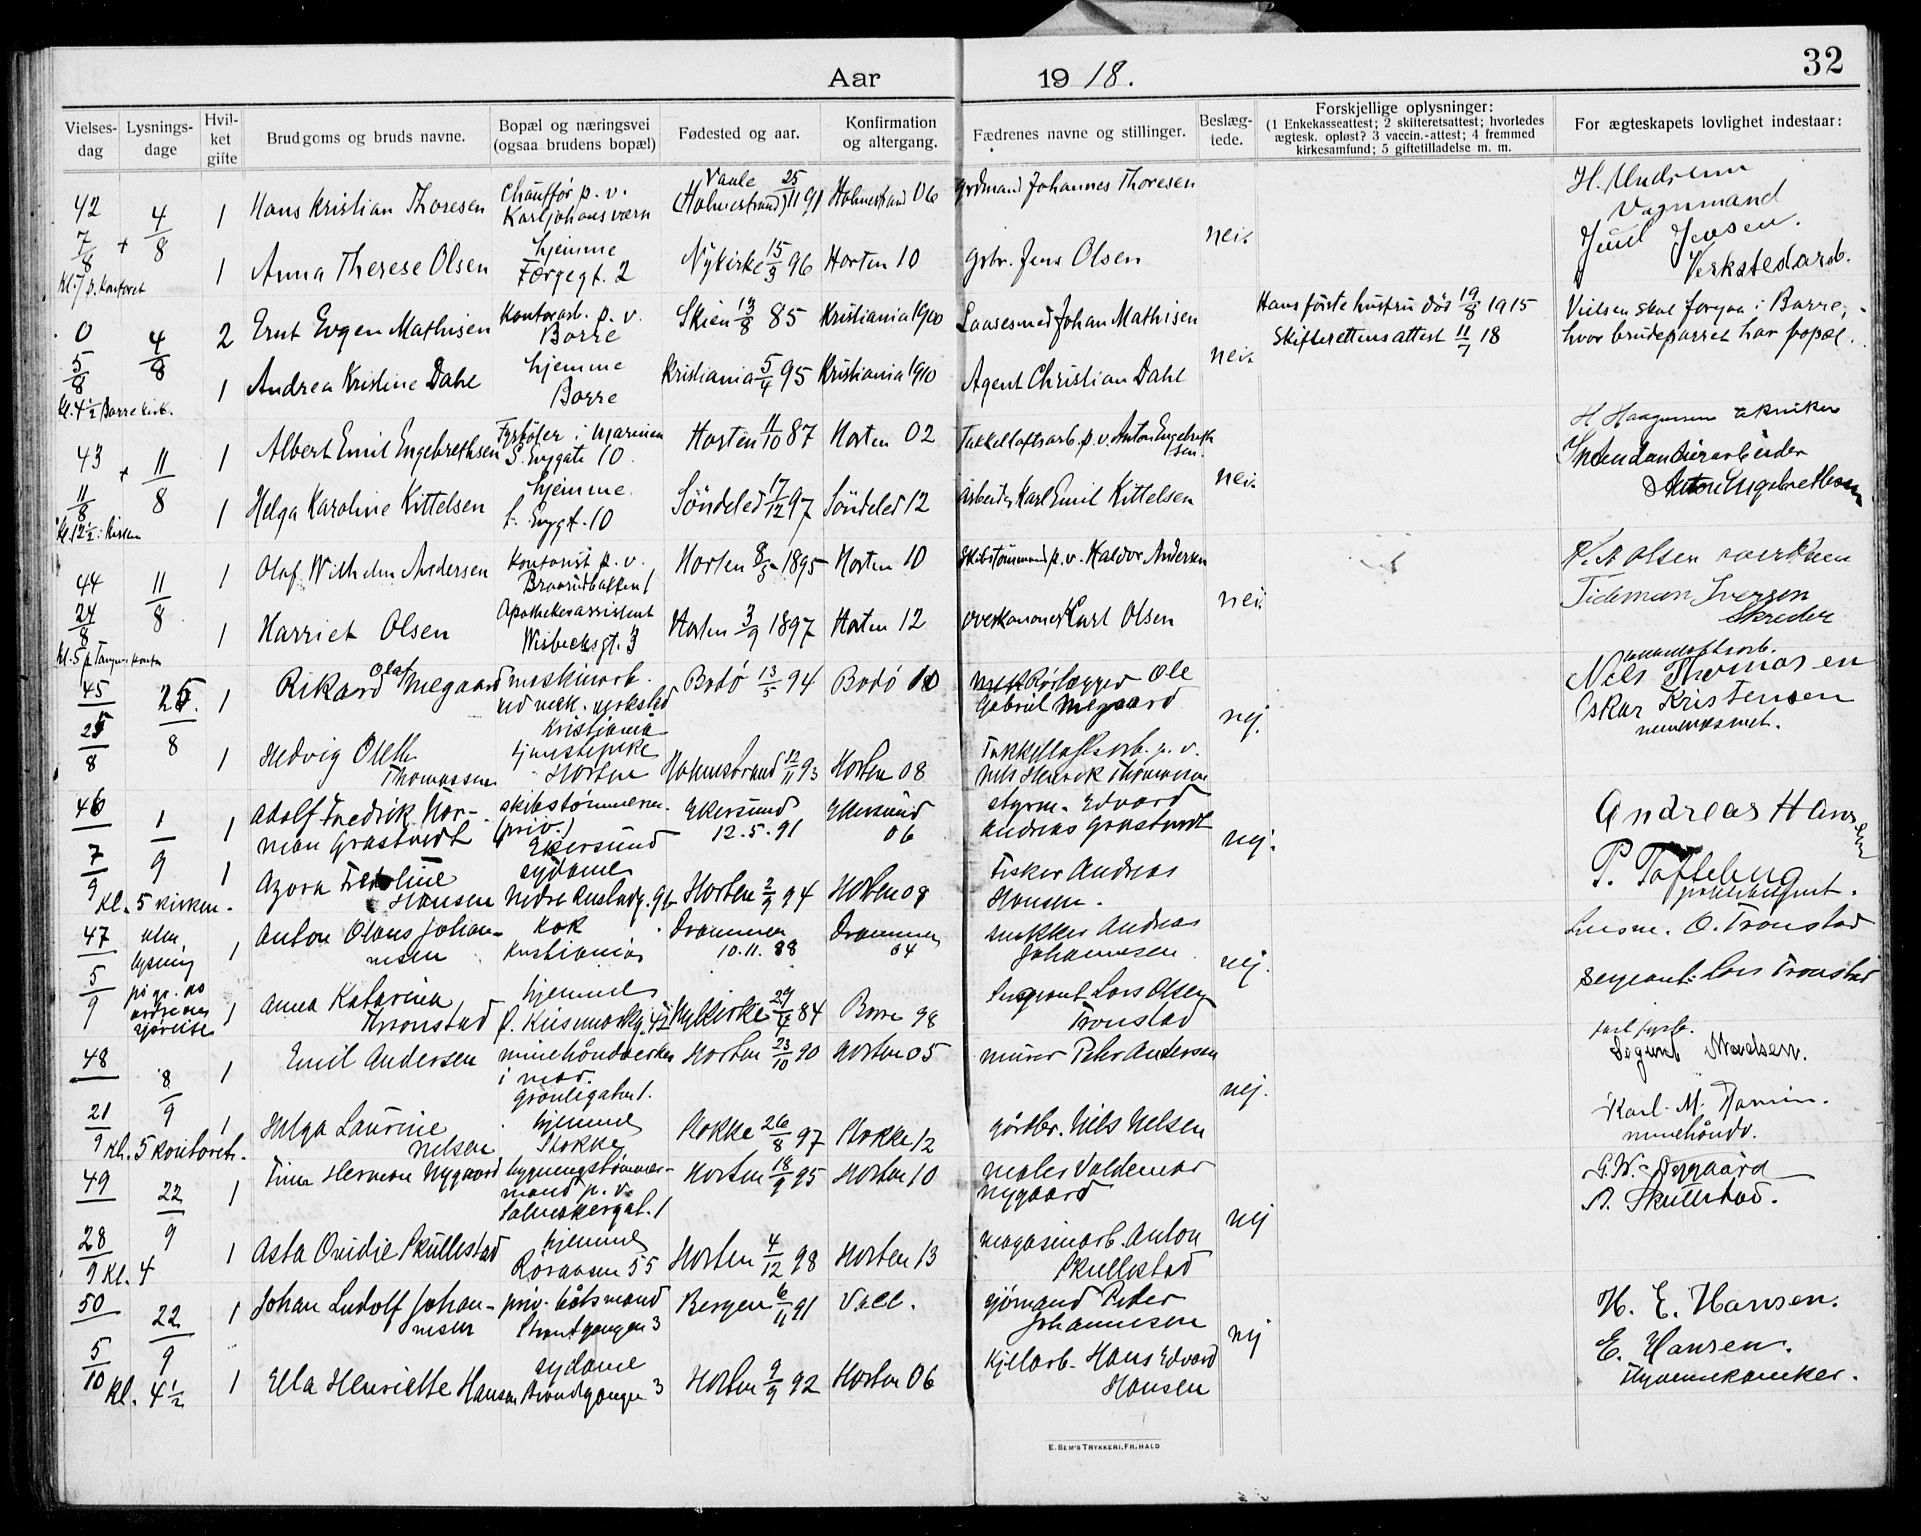 32
Aar 1918.
Vielses-dag Lysnings-dage Hvil-ket gifte Brudgoms og bruds navne. Bopæl og næringsvei (ogsaa brudens bopæl) Fødested og aar. Konfirmation og altergang. Fædrenes navne og stillinger. Beslæg-tede. Forskjellige oplysninger: (1 Enkekasseattest; 2 skifteretsattest; hvorledes ægtesk. opløst? 3 vaccin.-attest; 4 fremmed kirkesamfund; 5 giftetilladelse m. m. For ægteskapets lovlighet indestaar:
42 7/8 + 4/8 1 Hans Kristian Thoresen Chauffør p. v. Karljohansværn Vaale (Holmestrand) 25/11 91 Holmestrand 06 Grdmand Johannes Thoresen
Kl. 7 p. kontoret 1 Anna Therese Olsen hjemme Færgegt. 2 Nykirke 15/3 96 Horten 10 Gbr. Jens Olsen nei. Juul Jensen. Verkstedarb.
0 5/8 4/8 2 Ernt Evgen Mathisen Kontorarb. p. v. Borre Skien 19/8 85 Kristiania 1900 Laasesmed Johan Mathisen Hans første hustru død 19/8 1915 Skifterettens attest 11/7 18 Vielsen skal foregaa i Borre, hvor brudeparret har bopæl.
Kl. 4½ Borre kirk. 1 Andrea Kristine Dahl hjemme Borre Kristiania 5/4 95 Kristiania 1910 Agent Christian Dahl nei.
43 11/8 + 11/8 1 Albert Emil Engebrethsen Fyrbøter i Marinen S. Enggate 10 Horten 11/10 87 Horten 02 Takkelloftsarb. p. v. Anton Engebrethsen H Haagensen
Kl. 12½ i Kirken 1 Helga Karoline Kittelsen hjemme S. Enggt. 10 Søndeled 17/12 97 Søndeled 12 Arbeider Karl Emil Kittelsen nei. Anton Engebrethsen
44 24/8 11/8 1 Olaf Wilhelm Andersen Kontorist p. v. Braarudbakken 1 Horten 8/3 1895 Horten 10 Skibstømmermand p. v. Haldor Andersen Olsen
Kl. 5 p. 1 Harriet Olsen Apothekerassistent Wisbechsgt. 3 Horten 3/9 1897 Horten 12 Overkanoner Karl Olsen nei. Tideman Iversen Skreder
45 25/8 25/8 1 Rikard Olaf Megaard maskinarb. ved mek. verksted Kristiania Bodø 13/5 94 Bodø 10 Rørlægger Ole Gabriel Megaard Nels Thomasen
1 Hedvig Oleth Thomassen tjenestepike Horten Holmestrand 12/11 93 Horten 08 Takkelloftsarb. p. v. Nils Henrik Thomassen nej. Oskar Kristensen
46 7/9 1/9 1 Adolf Fredrik Norman Grastvedt skibstømmerm. (priv.) Ekersund Ekersund 12.5.91 Ekersund 06 styrm. Edvard Andreas Grastvedt Andreas Hansen
Kl. 5 kirken. 1 Azora Hansen sydame Horten 2/9 94 Horten 08 Fisker Andreas Hansen. nej. P. Tofteberg
47 5/9 uten lysning 1 Anton Olaus Johannesen Kok Kristiania Drammen 10.11.88 Drammen 04 snekker Andreas Johannesen O. Tronstad
1 Anna Katarina Thronstad hjemme Nykirke 29/4 84 Borre 98 Sergeant Lars Olsen Tronstad nej. Sergeant Lars Tronstad
48 21/9 8/9 1 Emil Andersen minehåndverker i mar. Grønligaten 1. Horten 23/10 90 Horten 05 murer Peter Andersen
Kl. 5 kontoret. 1 Helga Laurine Nelsen hjemme Stokke Stokke 26/8 97 Stokke 12 gårdbr. Niels Nelsen nej. Karl M. minehåndv.
49 28/9 22/9 1 Herman Nygaard bygningstømmermand p. v. Horten 18/9 95 Horten 10 maler Valdemar Nygaard G. W. Nygaard
Kl. 4 1 Asta Ovidie Skullestad hjemme Rørausen 55 Horten 4/12 98 Horten 13 magasinarb. Anton Skullestad nej A. Skullestad.
50 5/10 22/9 1 Johan Ludolf Johannesen priv. båtsmand Strandgangen 3 Bergen 6/11 91 Vall. sjømand Peder Johannesen H. E. Hansen.
Kl. 4½ 1 Ella Henriette Hansen sydame Strandgangen 3 Horten 9/9 92 Horten 06 Kjelarb. Hans Edvard Hansen nej E. Hansen.
E. SEM'S TRYKKERI, FR.HALD